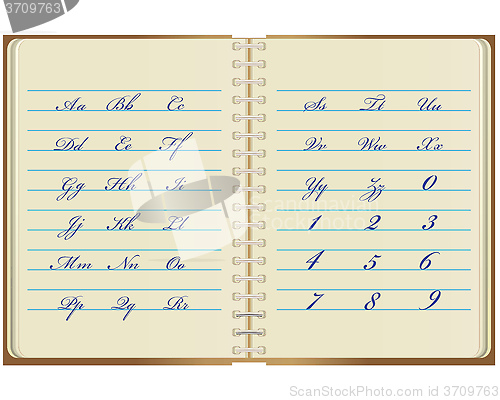 3709763
Aa Bb Cc
Dd Ee Ff
Gg Hh Ii
Jj Kk Ll
Mm Nn Oo
Pp Qq Rr
Ss Tt Uu
Vv Ww Xx
Yy Zz 0
1 2 3
4 5 6
7 8 9
© StockphotoImages.com | 3709763